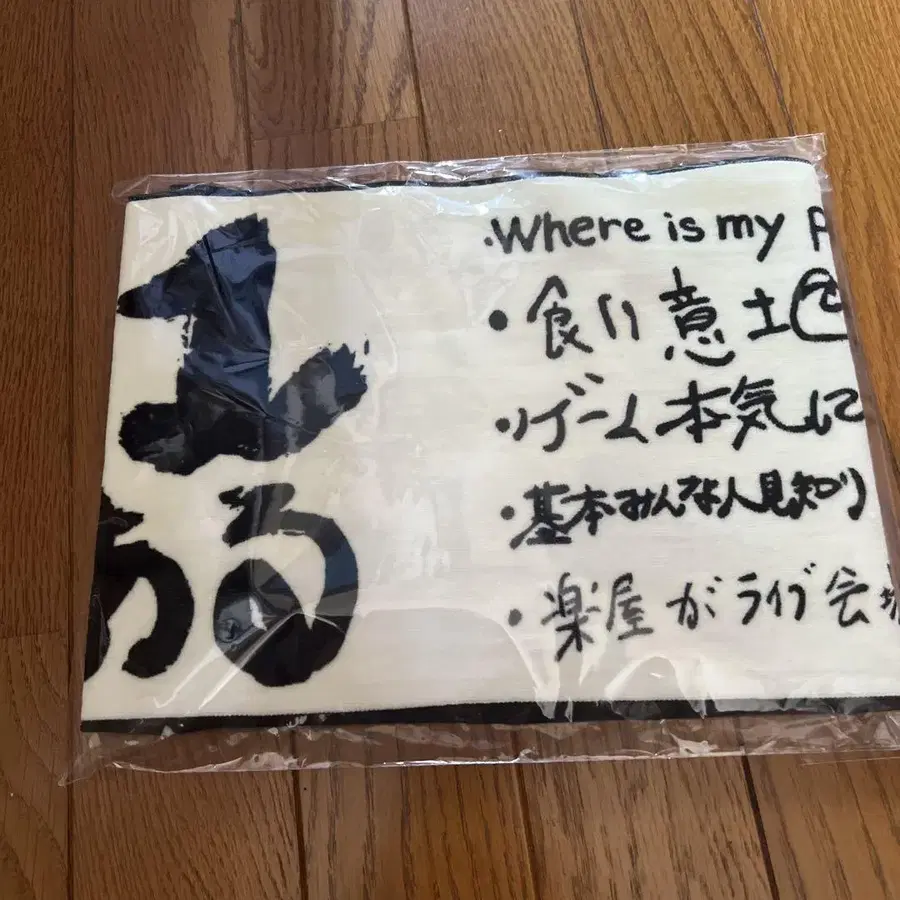 ある
・Where is my
・食い意地
・ゲーム本気に
・基本みんな人見知り
・楽屋がライブ会場